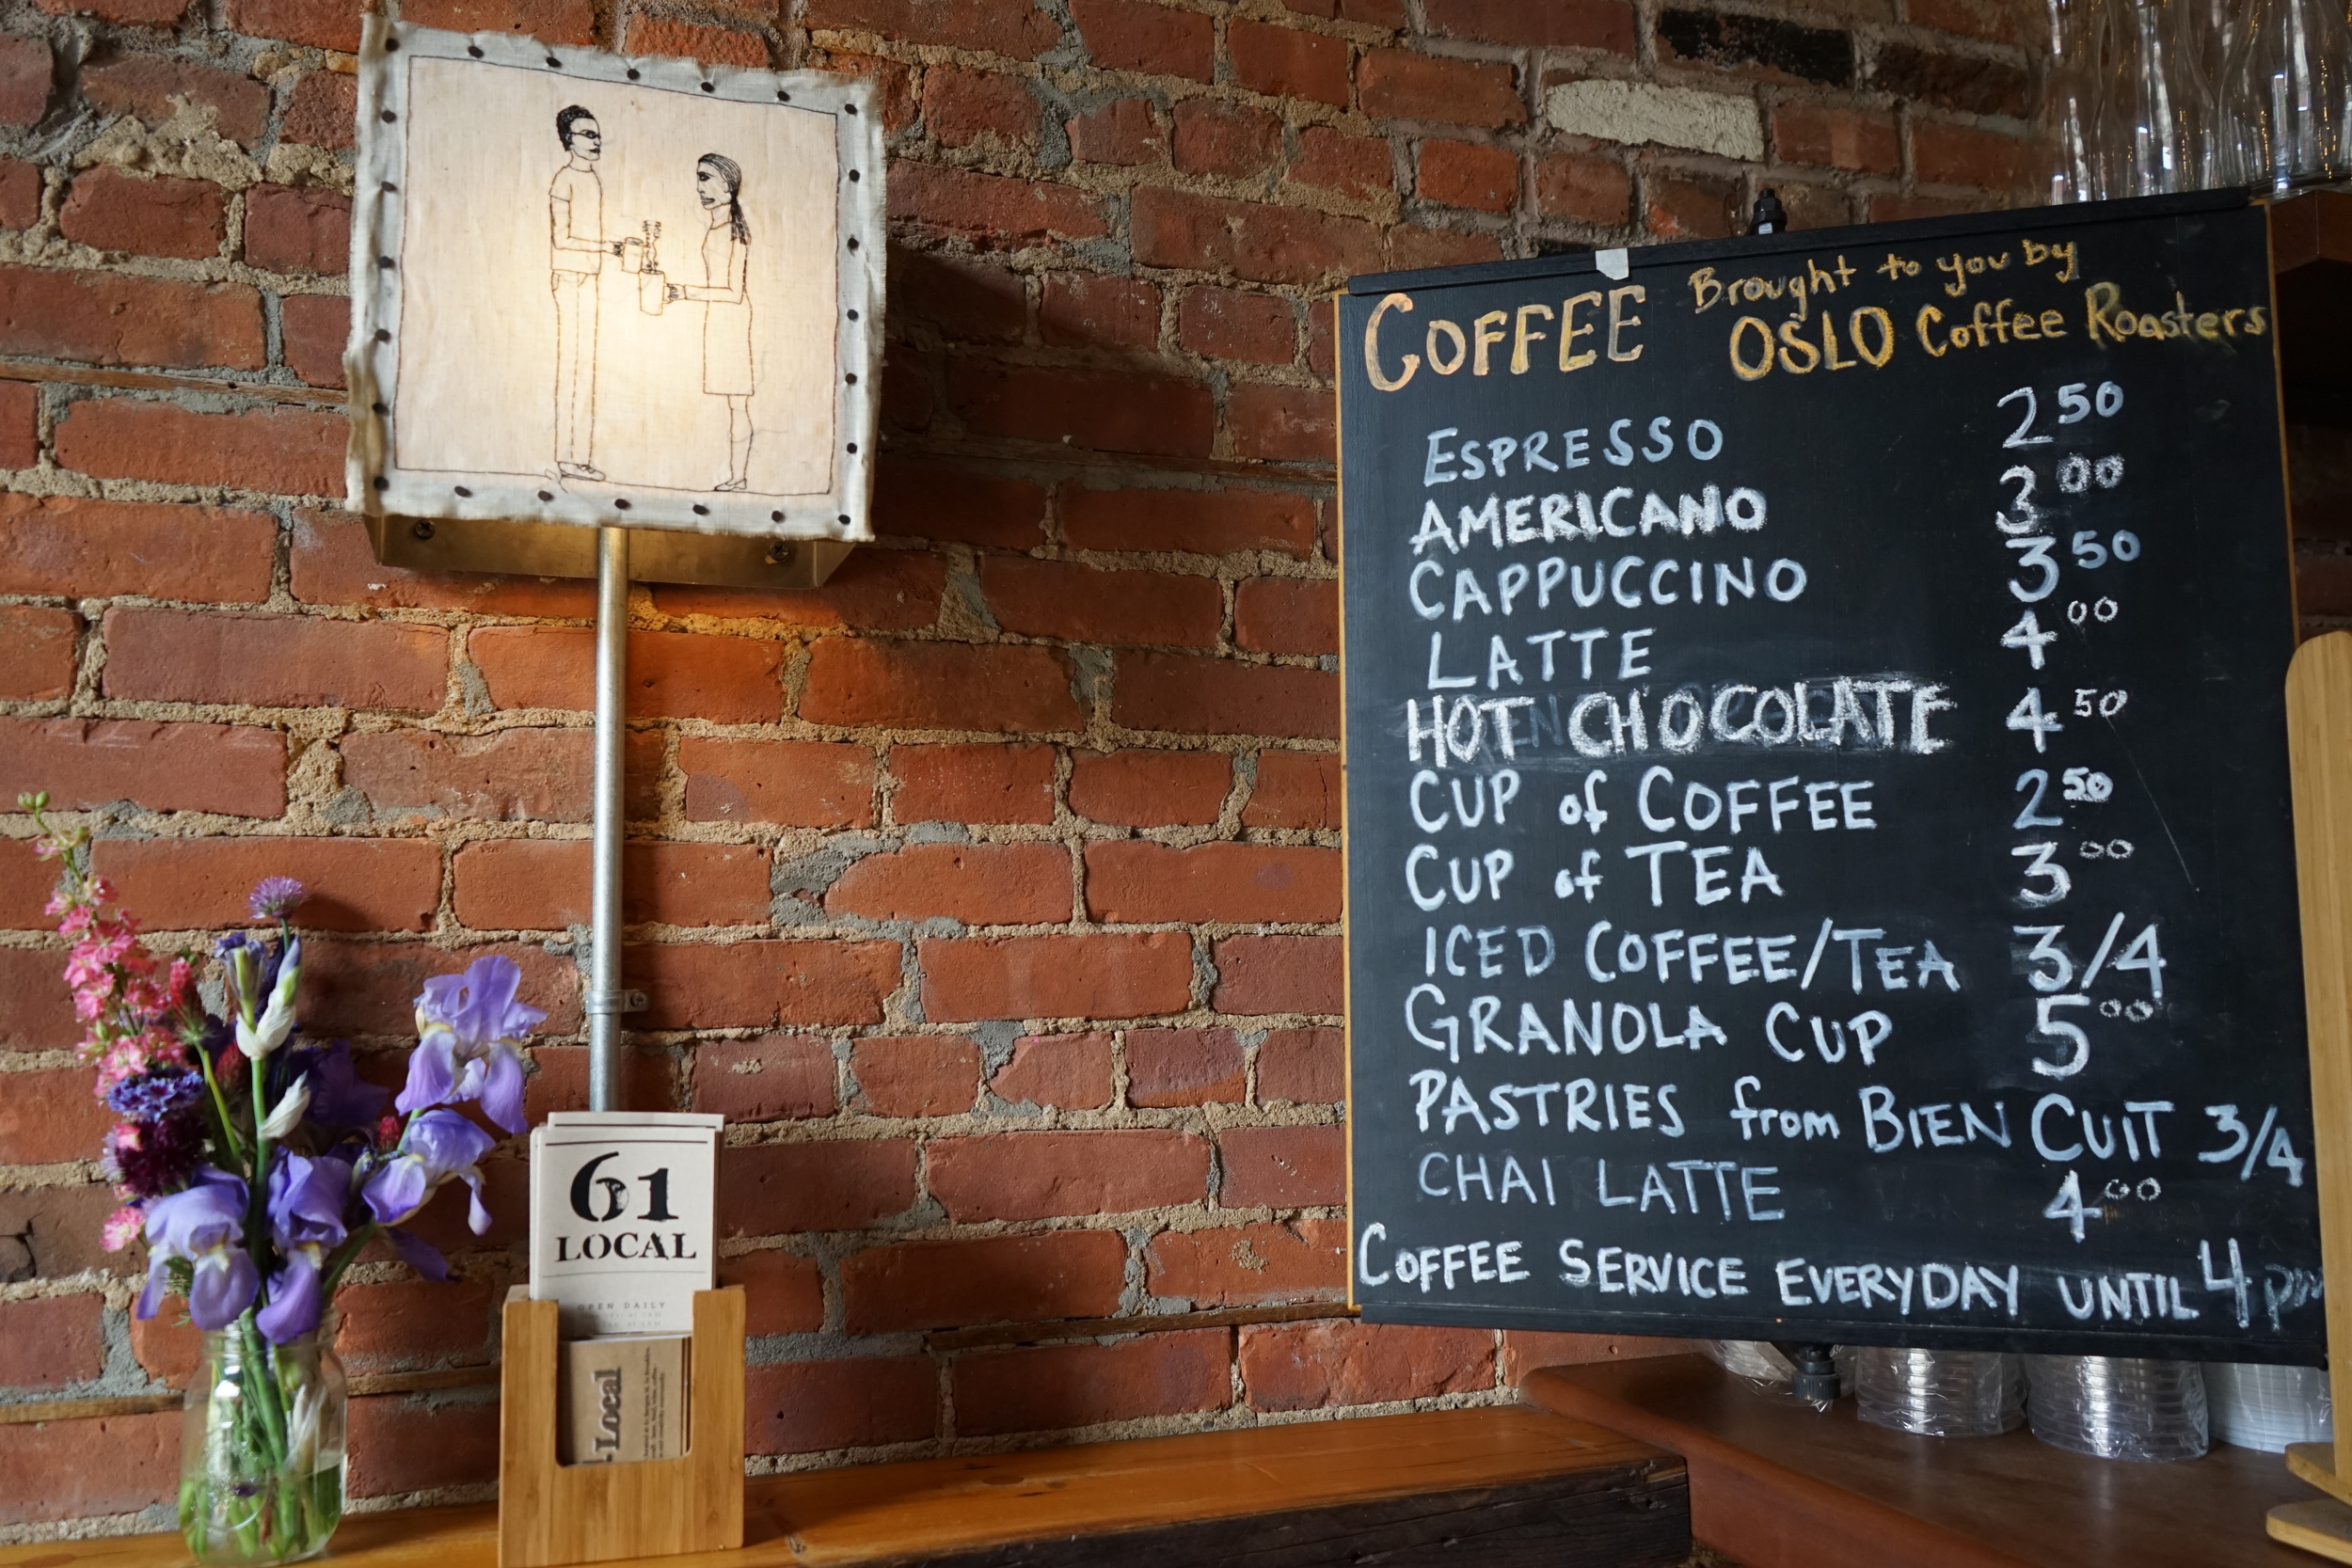 COFFEE Brought to you by
OSLO Coffee Roasters
ESPRESSO 2 50
AMERICANO 3 00
CAPPUCCINO 3 50
LATTE 4 00
HOT CHOCOLATE 4 50
CUP of COFFEE 2 50
CUP of TEA 3 00
ICED COFFEE/TEA 3/4
GRANOLA CUP 5 00
PASTRIES from BIEN CUIT 3/4
CHAI LATTE 4 00
COFFEE SERVICE EVERYDAY UNTIL 4 pm
61
LOCAL
OPEN DAILY
Local